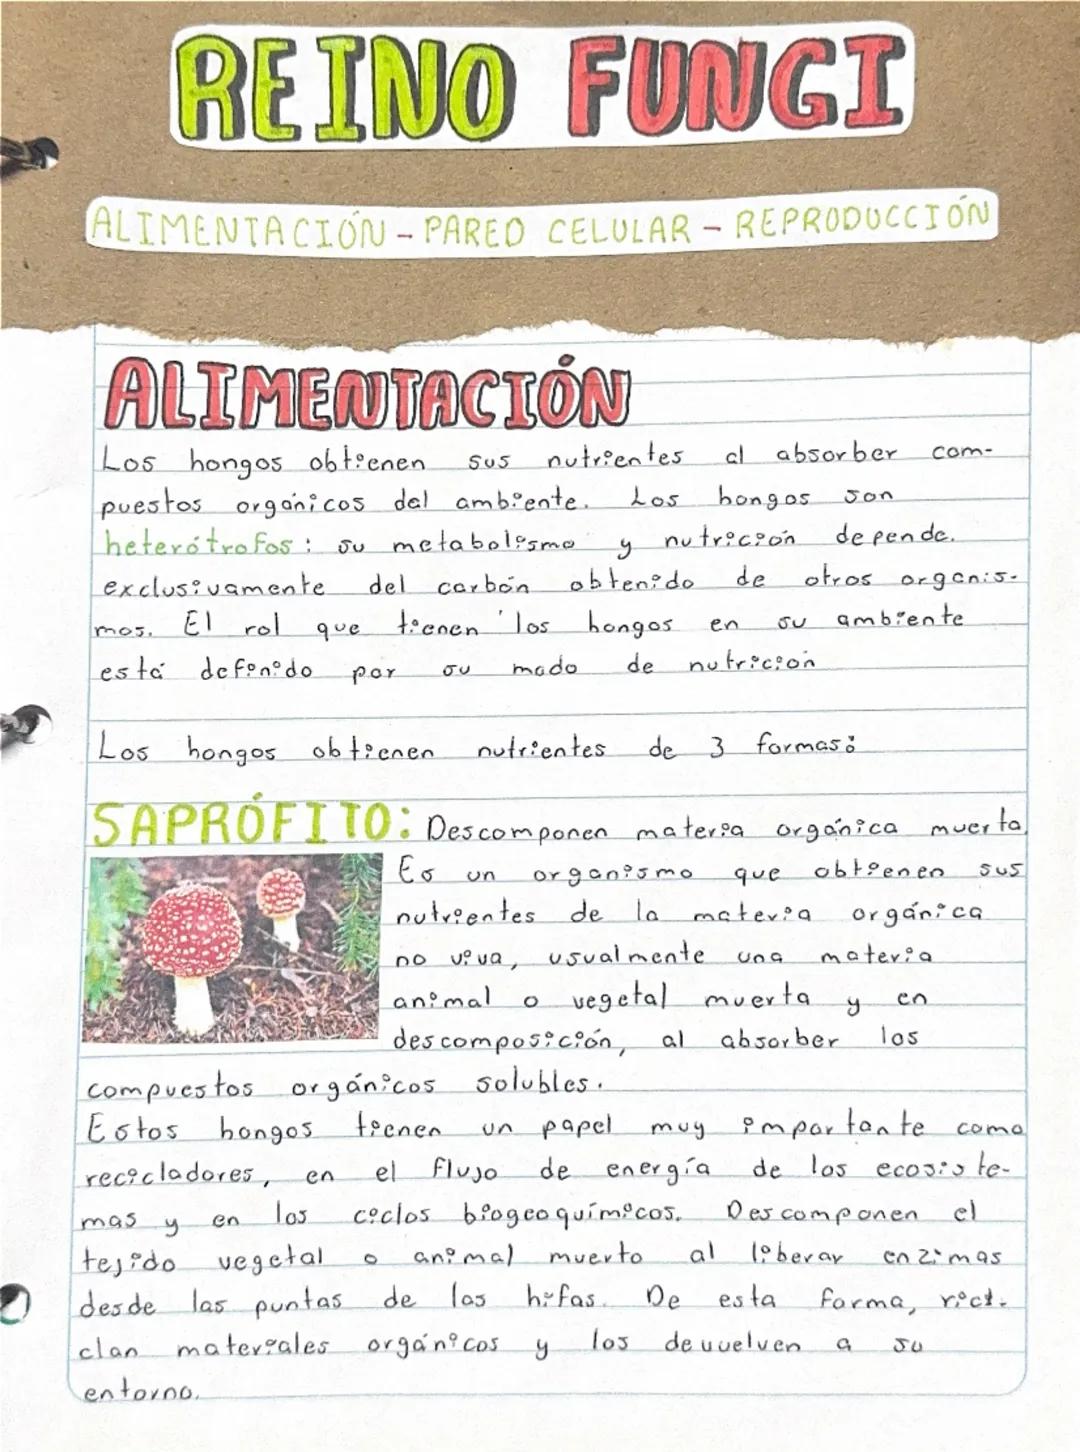 REINO FUNGI
ALIMENTACIÓN - PARED CELULAR - REPRODUCCIÓN
ALIMENTACIÓN
Los hongos obtienen sus nutrientes al absorber com-
puestos orgánicos del ambiente. Los hongos son
heterótrofos: su metabolismo y nutrición depende.
exclusivamente del carbón obtenido de otros organis-
mos. El rol que tienen los hongos en su ambiente
está definido por su modo de nutrición
Los hongos obtienen nutrientes de 3 formas:
SAPRÓFITO: Descomponen materia orgánica muerta
Es un organismo que obtienen sus
nutrientes de la materia orgánica
no viva, usualmente una materia
animal o vegetal muerta y en
descomposición, al absorber los
compuestos orgánicos solubles.
Estos hongos tienen un papel muy importante como
recicladores, en el flujo de energía de los ecosiste-
mas y en los ciclos biogeoquímicos. Descomponen el
tejido vegetal o animal muerto al liberar enzimas
desde las puntas de las hifas. De esta forma, reci-
clan materiales orgánicos y los devuelven a su
entorno.